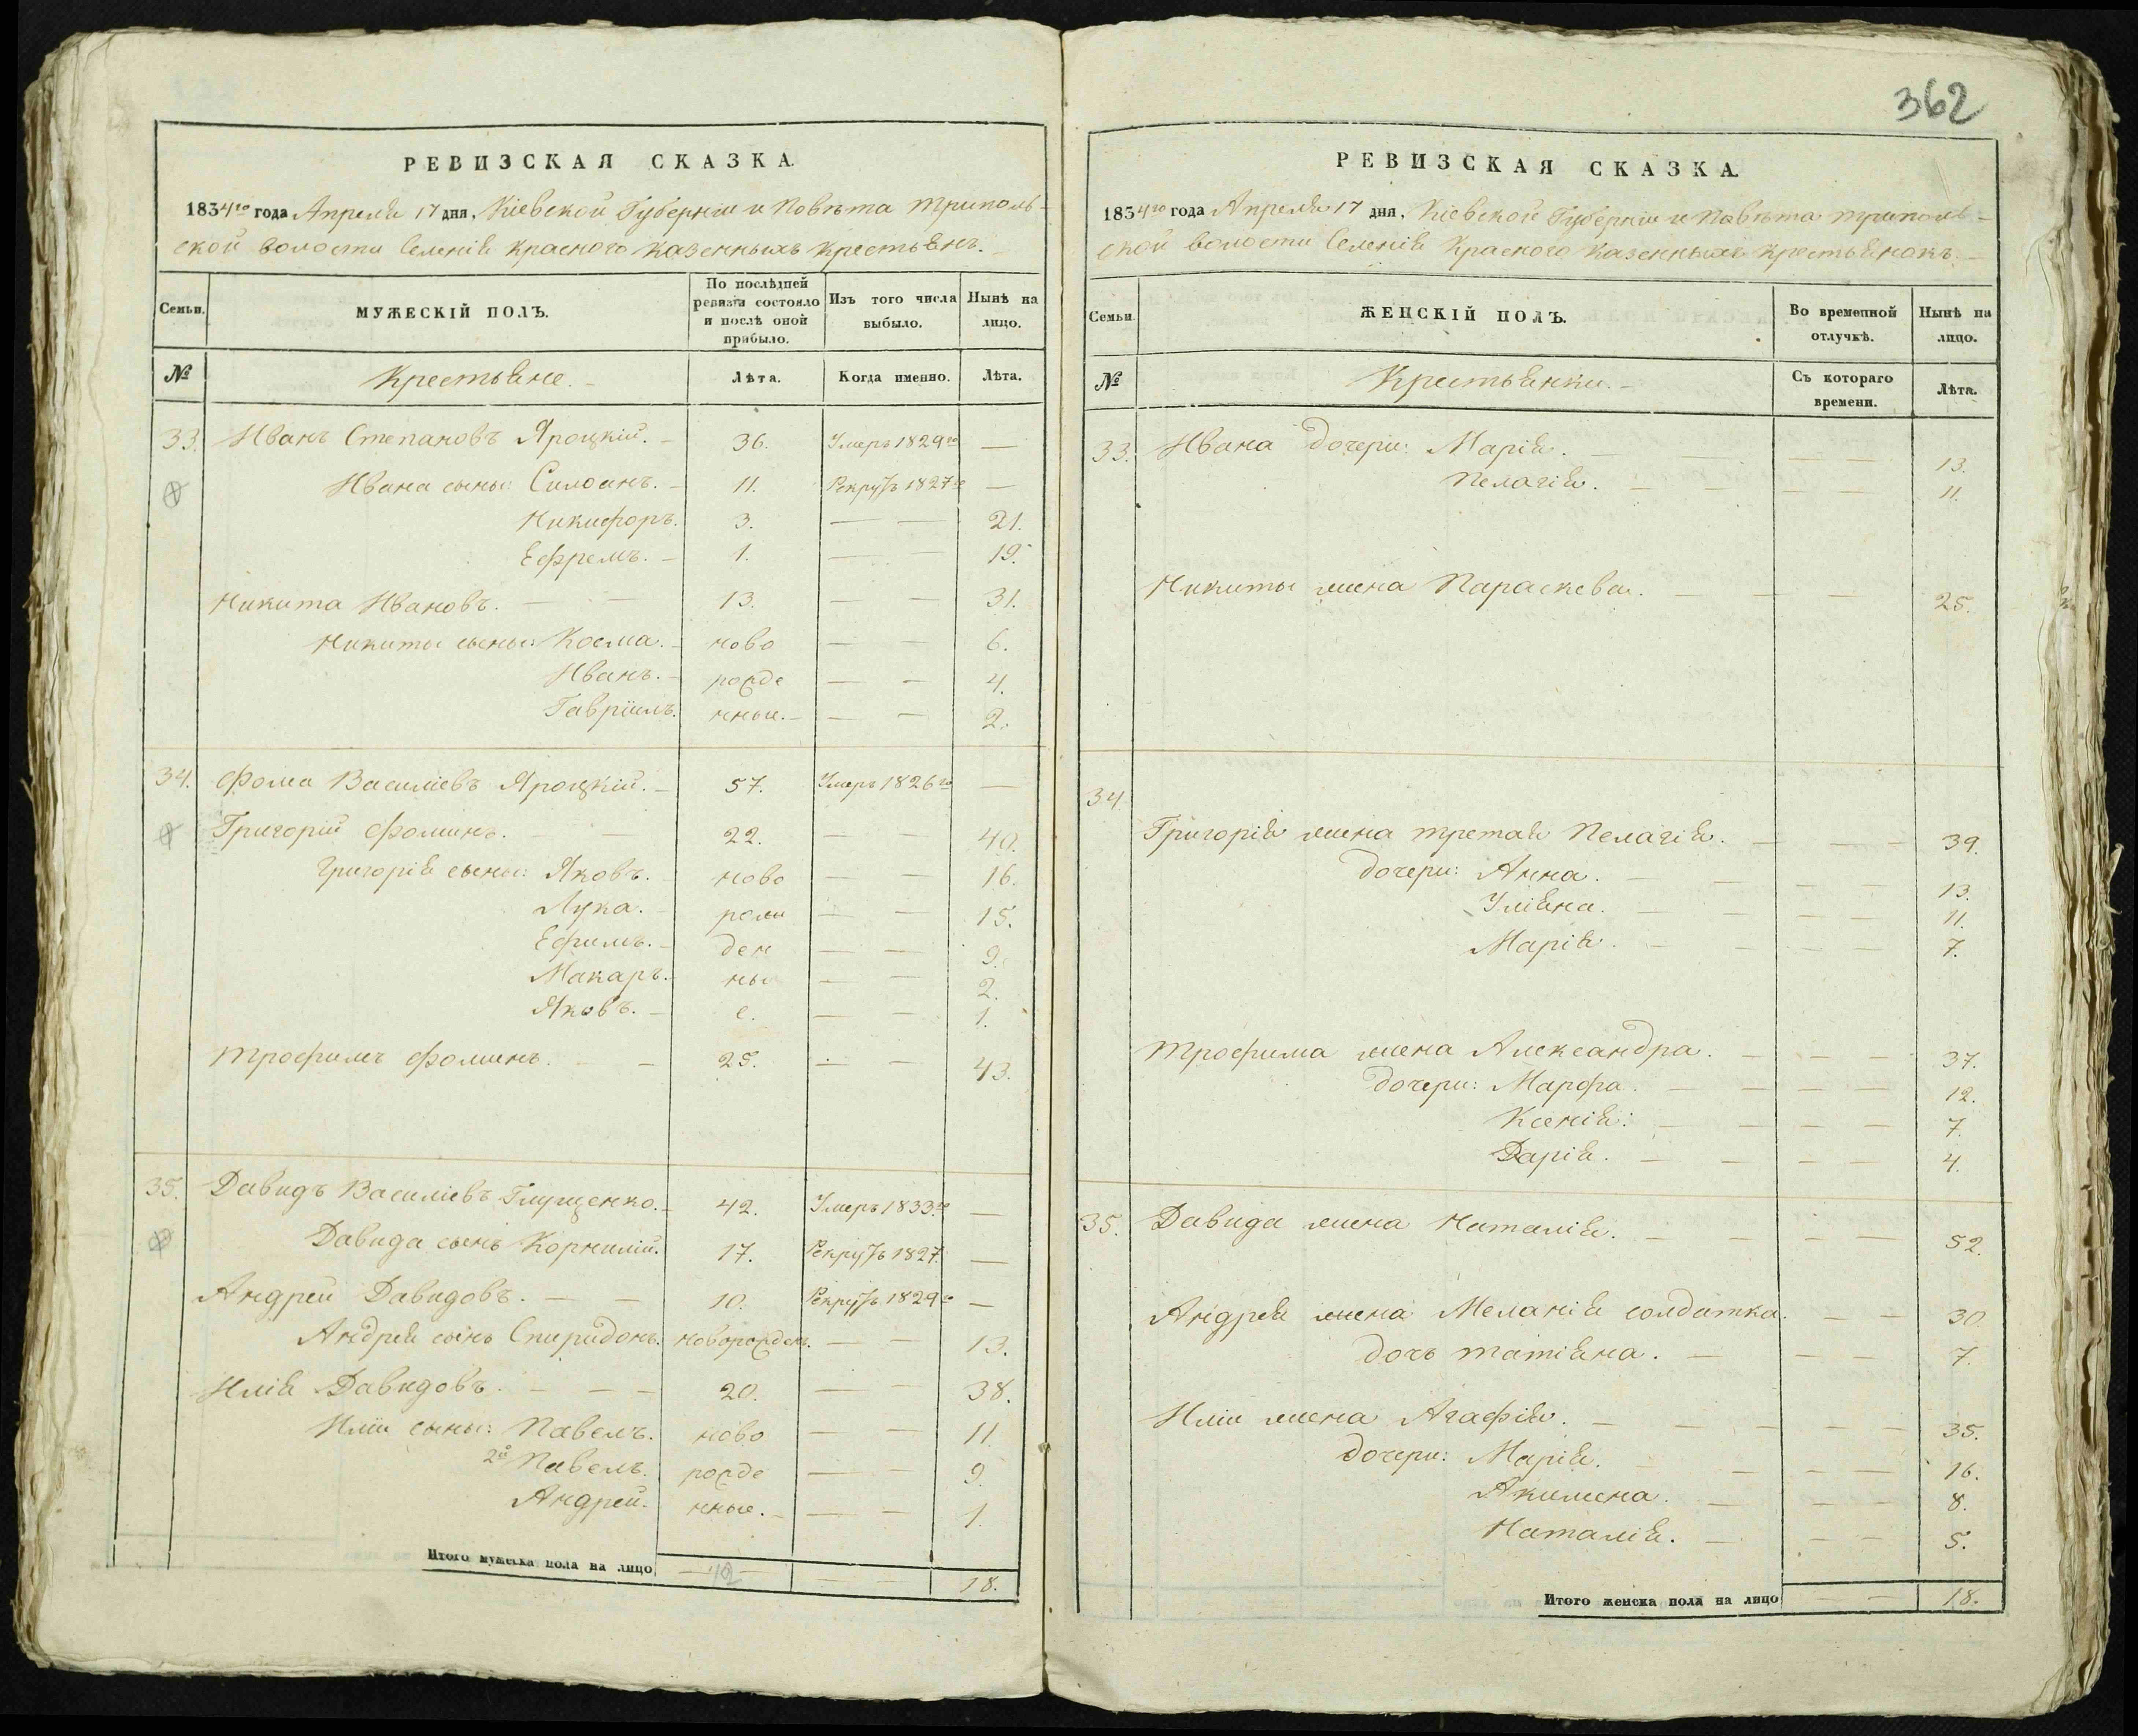 362
РЕВИЗСКАЯ СКАЗКА.
1834го года Апреля 17 дня, Кіевской Губерніи и Повѣта Триполь-
ской волости Селенія Красного казенныхъ крестьянъ.
Семьи. МУЖЕСКІЙ ПОЛЪ. По послѣдней ревизіи состояло и послѣ оной прибыло. Изъ того числа выбыло. Нынѣ на лицо.
№ Крестьяне. Лѣта. Когда именно. Лѣта.
33. Иванъ Степановъ Яроцкій. 36. Умеръ 1829го —
Ивана сыны: Силоанъ. 11. Рекрутъ 1827го —
Никифоръ. 3. — — 21.
Ефремъ. 1. — — 19.
Никита Ивановъ. 13. — — 31.
Никиты сыны: Косма. ново — — 6.
Иванъ. рожде — — 4.
Гавріилъ. нные. — — 2.
34. Фома Василіевъ Яроцкій. 57. Умеръ 1826го —
Григорій Фоминъ. 22. — — 40.
Григорія сыны: Яковъ. ново — — 16.
Лука. рож — — 15.
Ефимъ. ден — — 9.
Макаръ. ны — — 2.
Яковъ. е. — — 1.
Трофимъ Фоминъ. 25. — — 43.
35. Давидъ Василіевъ Глущенко. 42. Умеръ 1833го —
Давида сынъ Корнилій. 17. Рекрутъ 1827. —
Андрей Давидовъ. 10. Рекрутъ 1829го —
Андрея сынъ Спиридонъ. новорожден. — — 13.
Илія Давидовъ. 20. — — 38.
Иліи сыны: Павелъ. ново — — 11.
2й Павелъ. рожде — — 9.
Андрей. нные. — — 1.
Итого мужеска пола на лицо — — 18.
РЕВИЗСКАЯ СКАЗКА.
1834го года Апреля 17 дня, Кіевской Губерніи и Повѣта Триполь-
ской волости Селенія Красного казенныхъ крестьянокъ.
Семьи. ЖЕНСКІЙ ПОЛЪ. Во временной отлучкѣ. Нынѣ на лицо.
№ Крестьянки. Съ котораго времени. Лѣта.
33. Ивана дочери: Марія. — — 13.
Пелагія. — — 11.
Никиты жена Параскева. — — 25.
34.
Григорія жена третая Пелагія. — — 39.
дочери: Анна. — — 13.
Уліяна. — — 11.
Марія. — — 7.
Трофима жена Александра. — — 37.
дочери: Марфа. — — 12.
Ксенія: — — 7.
Дарія. — — 4.
35. Давида жена Наталія. — — 52.
Андрея жена Меланія солдатка. — — 30.
дочь Татіяна. — — 7.
Иліи жена Агафія. — — 35.
дочери: Марія. — — 16.
Акилина. — — 8.
Наталія. — — 5.
Итого женска пола на лицо — — 18.